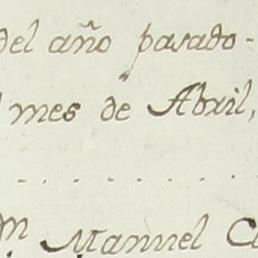 del año pasado-
mes de Abril,
Dn. Manuel